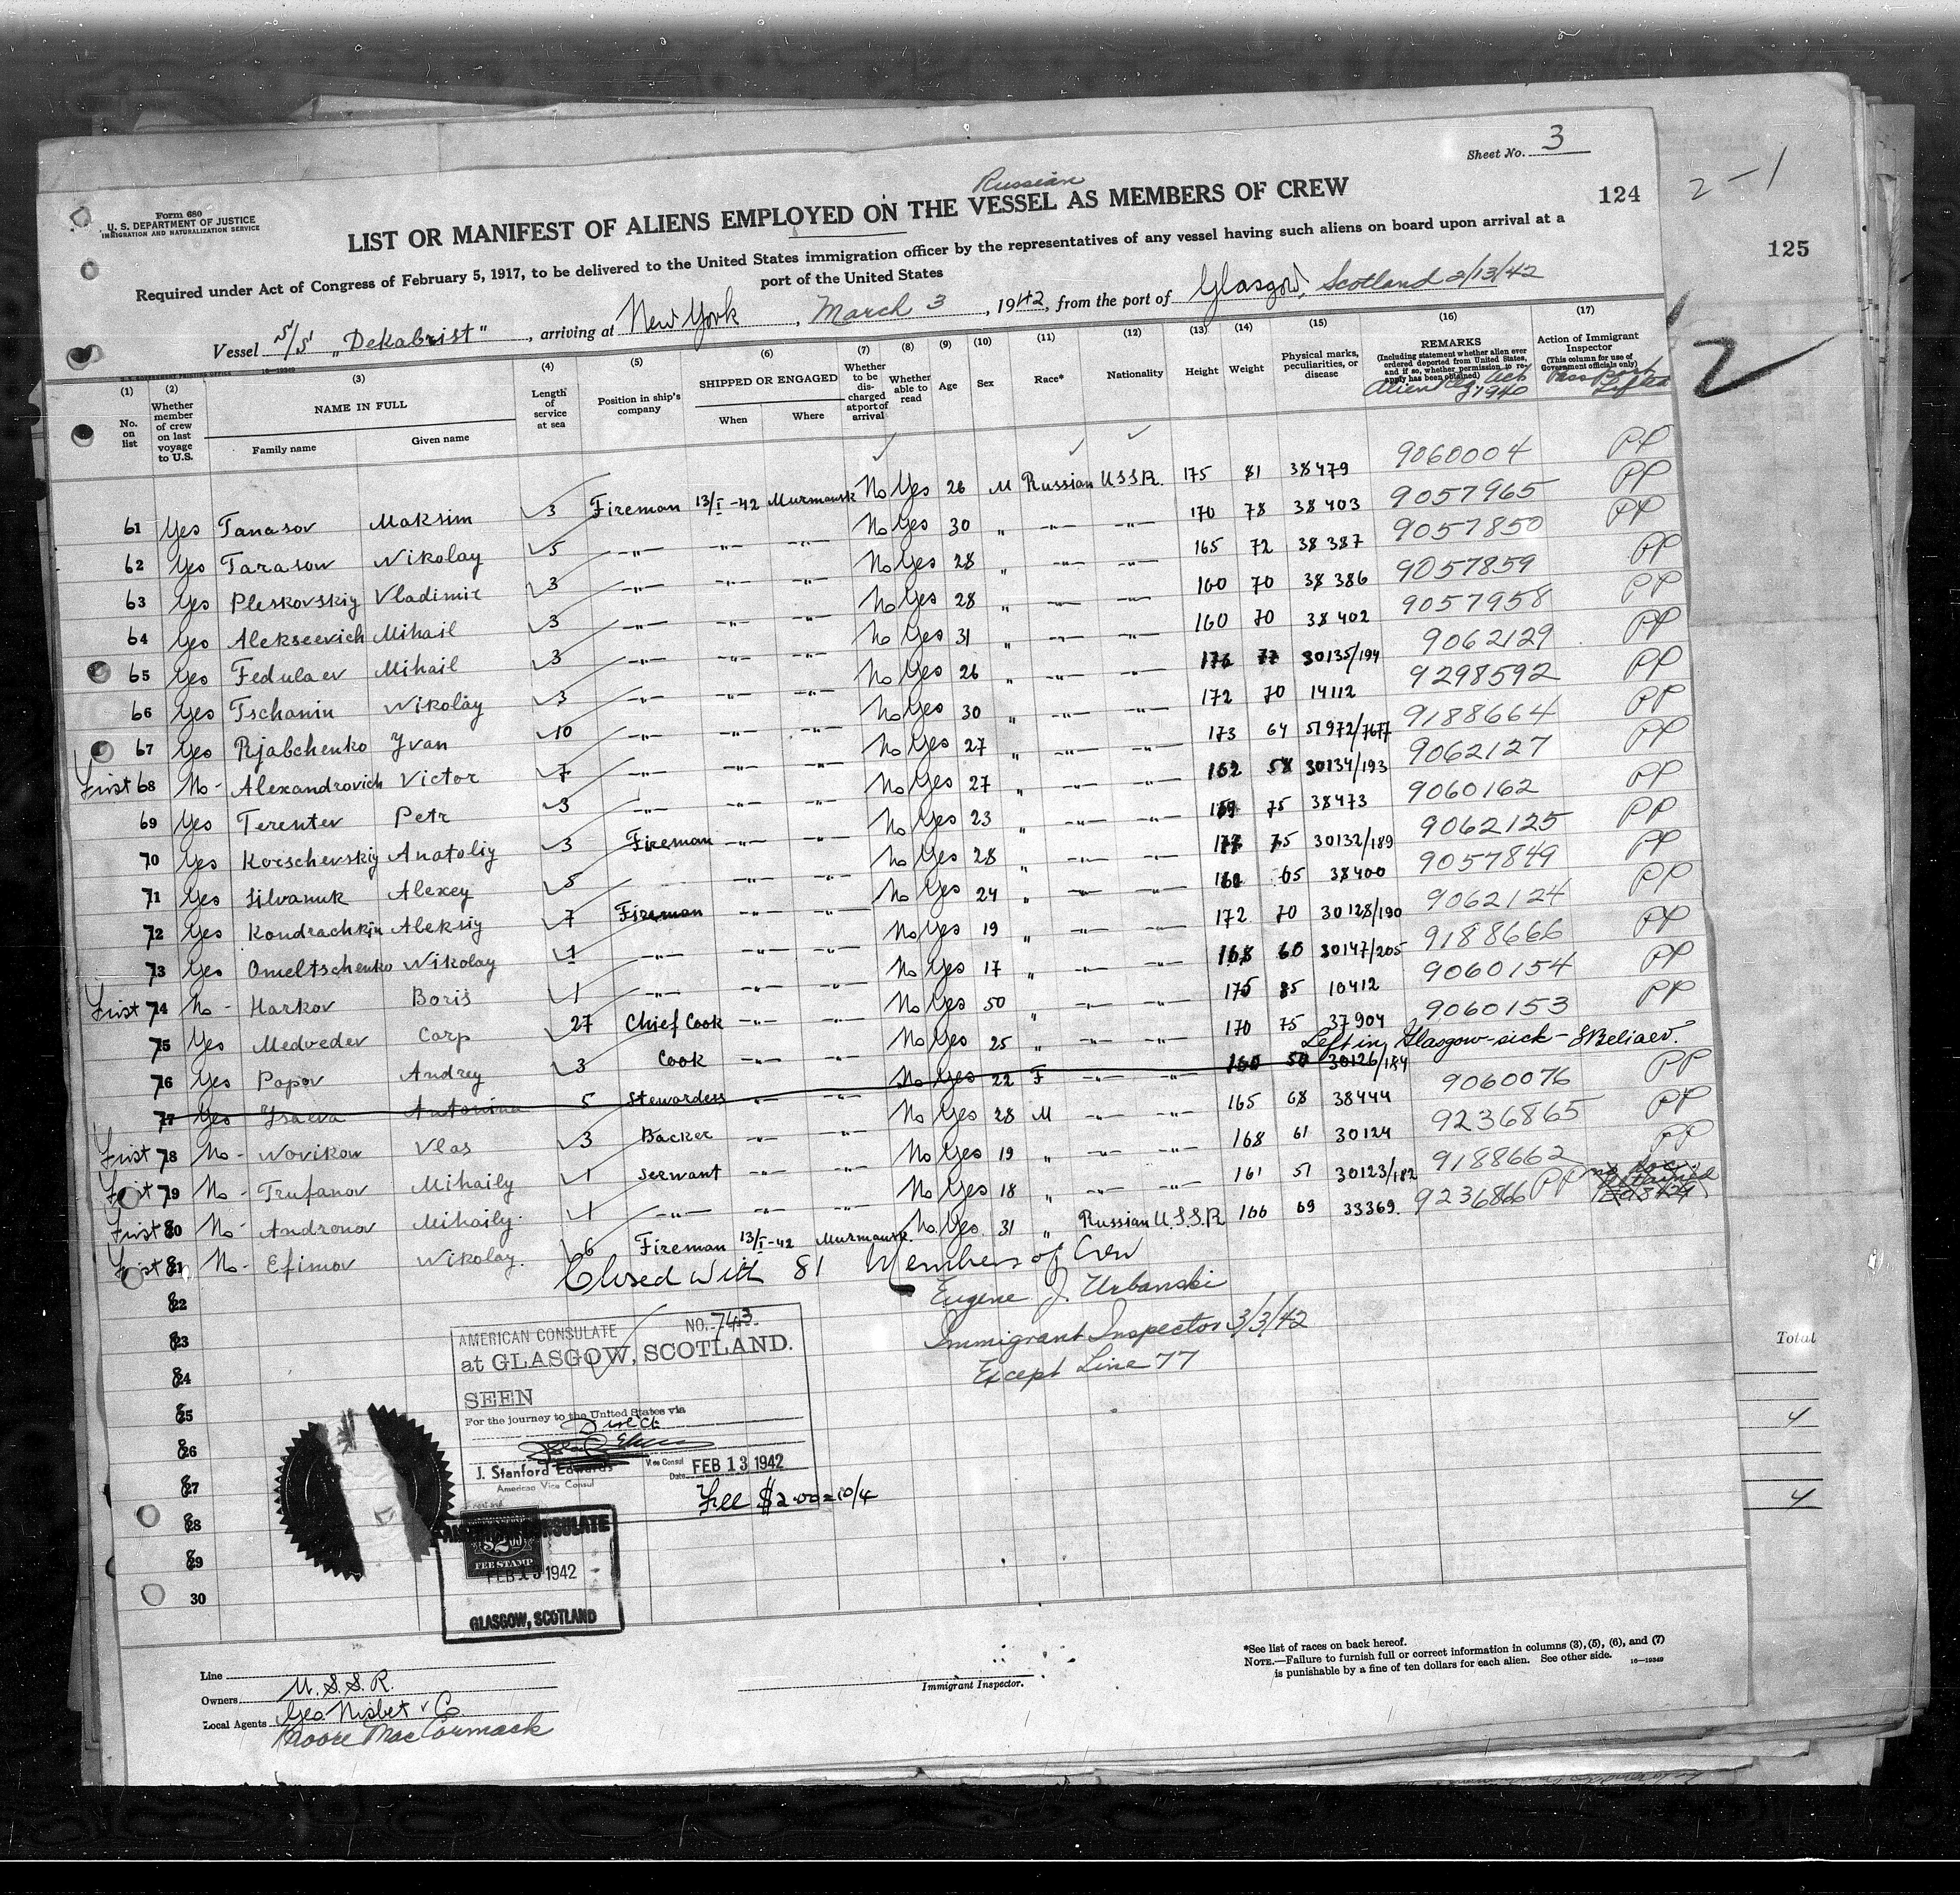 Sheet No. 3
2-1
124
125
Form 680
U. S. DEPARTMENT OF JUSTICE
IMMIGRATION AND NATURALIZATION SERVICE
Russian
LIST OR MANIFEST OF ALIENS EMPLOYED ON THE VESSEL AS MEMBERS OF CREW
Required under Act of Congress of February 5, 1917, to be delivered to the United States immigration officer by the representatives of any vessel having such aliens on board upon arrival at a
port of the United States
Vessel S/S „Dekabrist", arriving at New York, March 3, 1942, from the port of Glasgow, Scotland 2/13/42
2
(1) No. on list
(2) Whether member of crew on last voyage to U.S.
(3) NAME IN FULL Family name Given name
(4) Length of service at sea
(5) Position in ship's company
(6) SHIPPED OR ENGAGED When Where
(7) Whether to be discharged at port of arrival
(8) Whether able to read
(9) Age
(10) Sex
(11) Race*
(12) Nationality
(13) Height
(14) Weight
(15) Physical marks, peculiarities, or disease
(16) REMARKS (Including statement whether alien ever ordered deported from United States, and if so, whether permission to reapply has been obtained) Alien Reg. Act 1940
(17) Action of Immigrant Inspector (This column for use of Government officials only) Passport Lifted
61 Yes Tanasov Maksim 3 Fireman 13/I-42 Murmansk No Yes 26 M Russian U.S.S.R. 175 81 38479 9060004 PP
62 Yes Tarasow Nikolay 5 -"- -"- -"- No Yes 30 " -"- -"- 170 78 38403 9057965 PP
63 Yes Pleskovskiy Vladimir 3 -"- -"- -"- No Yes 28 " -"- -"- 165 72 38387 9057850 PP
64 Yes Alekseevich Mihail 3 -"- -"- -"- No Yes 28 " -"- -"- 160 70 38386 9057859 PP
65 Yes Fedulaev Mihail 3 -"- -"- -"- No Yes 31 " -"- -"- 160 70 38402 9057958 PP
66 Yes Tschanin Nikolay 3 -"- -"- -"- No Yes 26 " -"- -"- 176 77 30135/194 9062129 PP
67 Yes Rjabchenko Yvan 10 -"- -"- -"- No Yes 30 " -"- -"- 172 70 14112 9298592 PP
First 68 No - Alexandrovich Victor 7 -"- -"- -"- No Yes 27 " -"- -"- 173 64 51972/7677 9188664 PP
69 Yes Terentev Petr 3 -"- -"- -"- No Yes 27 " -"- -"- 162 58 30134/193 9062127 PP
70 Yes Korschevskiy Anatoliy 3 Fireman -"- -"- No Yes 23 " -"- -"- 75 38473 9060162 PP
71 Yes Silvanuk Alexey 5 -"- -"- No Yes 28 " -"- -"- 177 75 30132/189 9062125 PP
72 Yes Kondrachkin Aleksiy 7 Fireman -"- -"- No Yes 24 " -"- -"- 65 38400 9057849 PP
73 Yes Omeltschenko Nikolay 1 -"- -"- -"- No Yes 19 " -"- -"- 172 70 30128/190 9062124 PP
First 74 No - Harkov Boris 1 -"- -"- -"- No Yes 17 " -"- -"- 168 60 30147/205 9188666 PP
75 Yes Medvedev Carp 27 Chief Cook -"- -"- No Yes 50 " -"- -"- 175 85 10412 9060154 PP
76 Yes Popov Andrey 3 Cook -"- -"- No Yes 25 " -"- -"- 170 75 37904 9060153 PP
77 Yes Ysaeva Antonina 5 Stewardess -"- -"- No Yes 22 F -"- -"- 160 50 30126/184 Left in Glasgow - sick - SBeliaev.
First 78 No - Novikow Vlas 3 Backer -"- -"- No Yes 28 M -"- -"- 165 68 38444 9060076 PP
First 79 No - Trufanov Mihaily 1 Serwant -"- -"- No Yes 19 " -"- -"- 168 61 30124 9236865 PP
First 80 No - Andronov Mihaily. 1 -"- -"- -"- No Yes 18 " -"- -"- 161 51 30123/182 9188662 PP
First 81 No - Efimov Nikolay. 6 Fireman 13/I-42 Murmansk. No. Yes. 31 " Russian U.S.S.R 166 69 33369. 9236866 PP
Closed with 81 Members of Crew
Eugene J. Urbanski
Immigrant Inspector 3/3/42
Except Line 77
82
83
84
85
86
87
88
89
30
AMERICAN CONSULATE NO. 743
at GLASGOW, SCOTLAND.
SEEN
For the journey to the United States via
Direct
J. Stanford Edwards Vice Consul
American Vice Consul
Date FEB 13 1942
Fee $2.00 = 10/4
AMERICAN CONSULATE
$2.00
FEE STAMP
FEB 13 1942
GLASGOW, SCOTLAND
Total
4
4
Line
Owners U.S.S.R.
Local Agents Geo. Nisbet & Co.
Moore MacCormack
Immigrant Inspector.
*See list of races on back hereof.
NOTE.—Failure to furnish full or correct information in columns (3), (5), (6), and (7)
is punishable by a fine of ten dollars for each alien. See other side. 16—19349